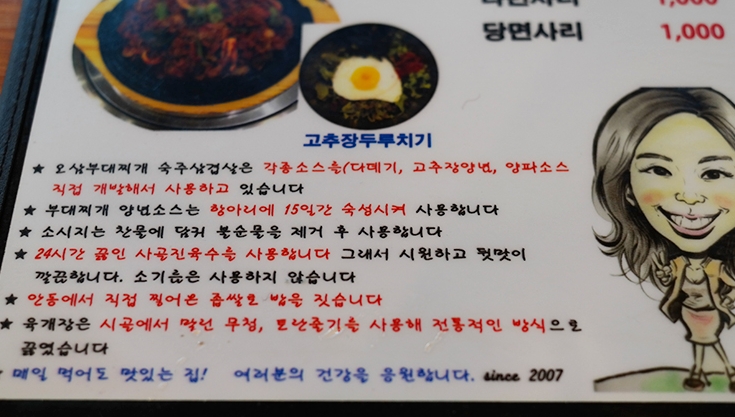 당면사리 1,000
고추장두루치기
★ 오삼부대찌개 숙주삼겹살은 각종소스들(다데기, 고추장양념, 양파소스
직접 개발해서 사용하고 있습니다
★ 부대찌개 양념소스는 항아리에 15일간 숙성시켜 사용합니다
★ 소시지는 찬물에 담궈 불순물을 제거 후 사용합니다
★ 24시간 끓인 사골진육수를 사용합니다 그래서 시원하고 뒷맛이
깔끔합니다. 소기름은 사용하지 않습니다
★ 안동에서 직접 찧어온 좁쌀로 밥을 짓습니다
★ 육개장은 시골에서 말린 무청, 토란줄기를 사용해 전통적인 방식으로
끓였습니다
★ 매일 먹어도 맛있는 집! 여러분의 건강을 응원합니다. since 2007